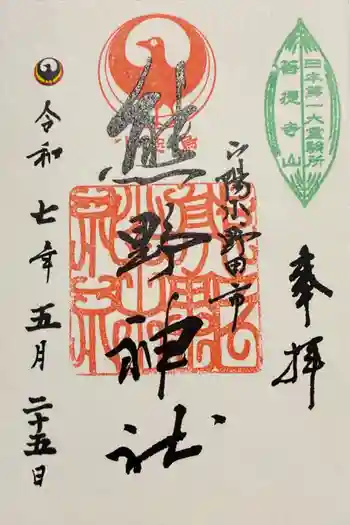 日本第一大霊験所
菩提寺山
奉拝
野田市
熊野神社
令和七年五月二十五日